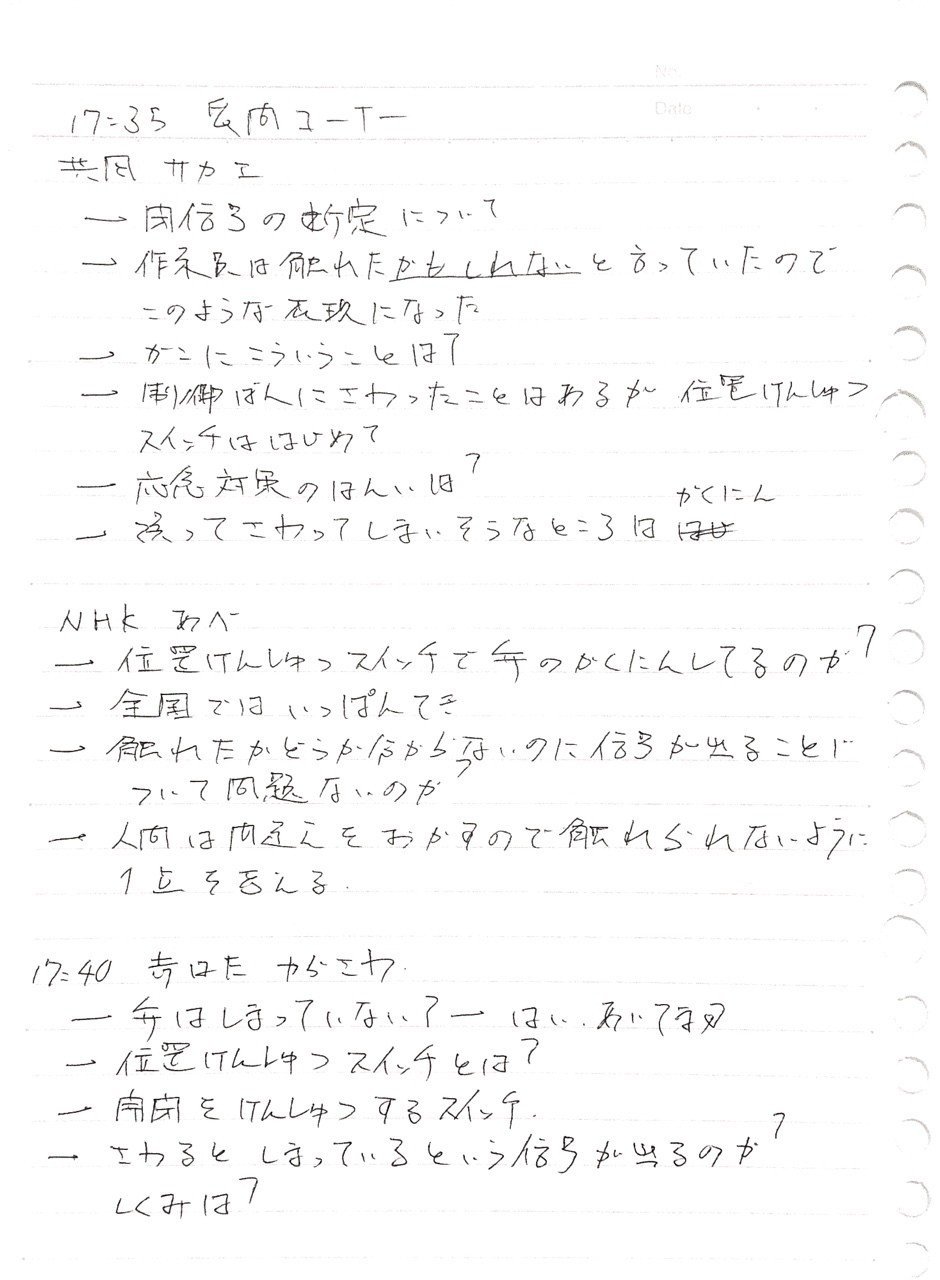 No.
Date
17:35 質問コーナー
共同 サカエ
ー 閉信号の断定について
ー 作業員は触れたかもしれないと言っていたので
このような表現になった
ー かこにこういうことは?
ー 制御ばんにさわったことはあるが 位置けんしゅつ
スイッチははじめて
ー 応急対策のはんいは?
ー 誤ってさわってしまいそうなところは かくにん
NHK あべ
ー 位置けんしゅつスイッチで弁のかくにんしてるのか?
ー 全国ではいっぱんてき
ー 触れたかどうか分からないのに信号が出ることに
ついて問題ないのか?
ー 人間は間違えをおかすので触れられないように
1点を考える.
17:40 からさわ
ー 弁はしまっていない?ー はい.あいてます
ー 位置けんしゅつスイッチとは?
ー 開閉をけんしゅつするスイッチ.
ー さわると しまっているという信号が出るのか?
しくみは?